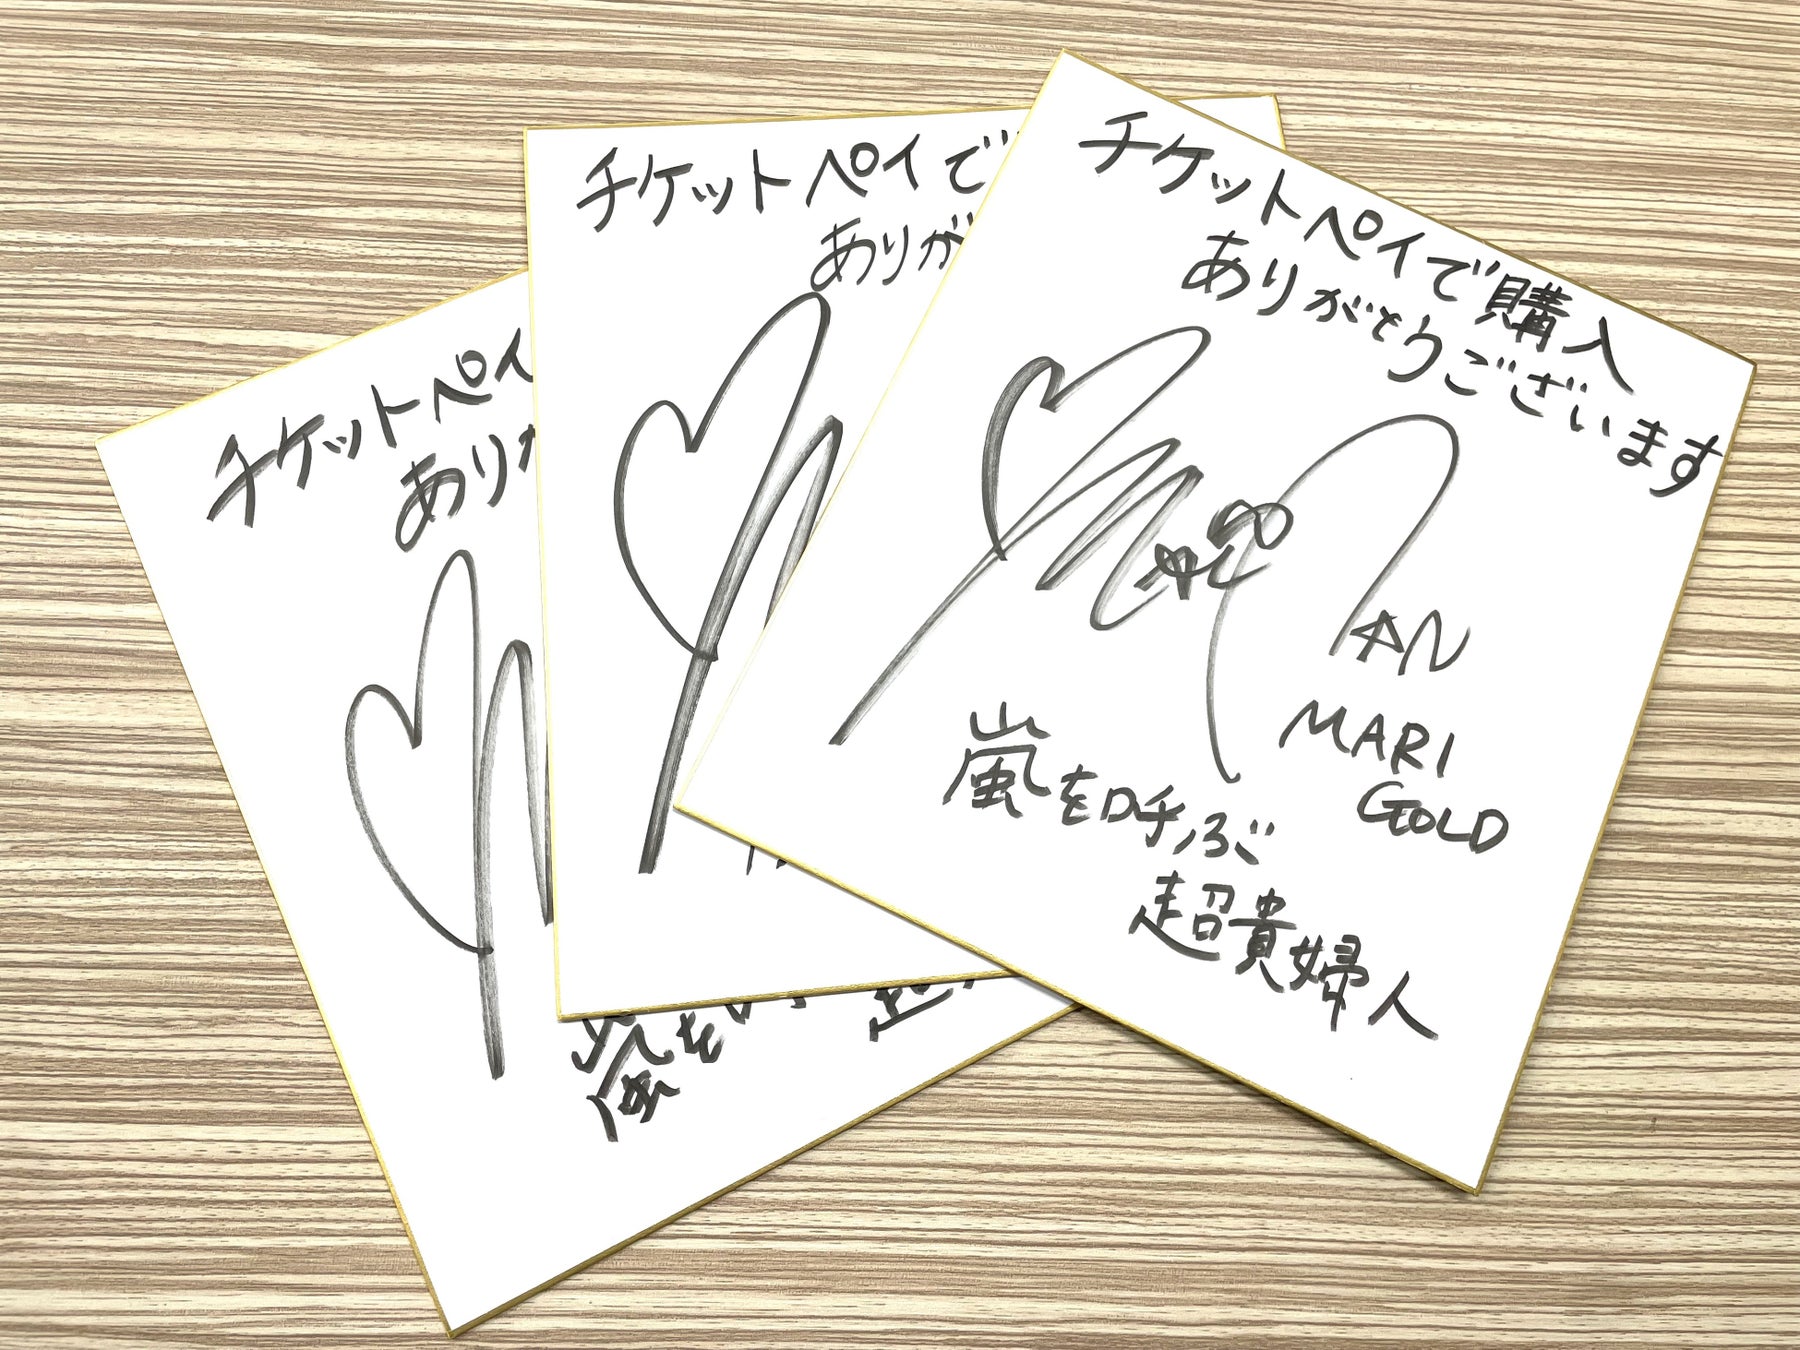 チケットペイで購入
ありがとうございます
AN
MARI
GOLD
嵐を呼ぶ
超貴婦人
チケットペイで
ありが
チケットペイ
ありが
嵐を